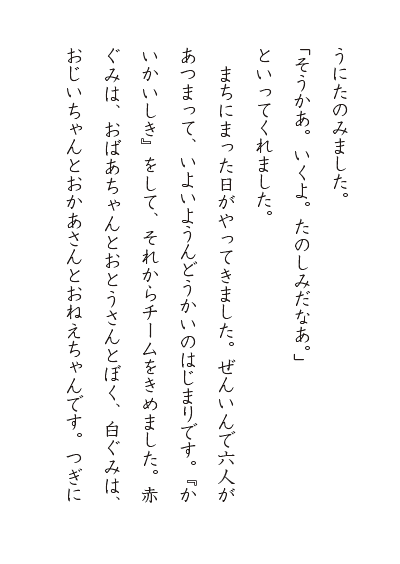 うにたのみました。
「そうかあ。いくよ。たのしみだなあ。」
といってくれました。
　まちにまった日がやってきました。ぜんいんで六人が
あつまって、いよいようんどうかいのはじまりです。『か
いかいしき』をして、それからチームをきめました。赤
ぐみは、おばあちゃんとおとうさんとぼく、白ぐみは、
おじいちゃんとおかあさんとおねえちゃんです。つぎに